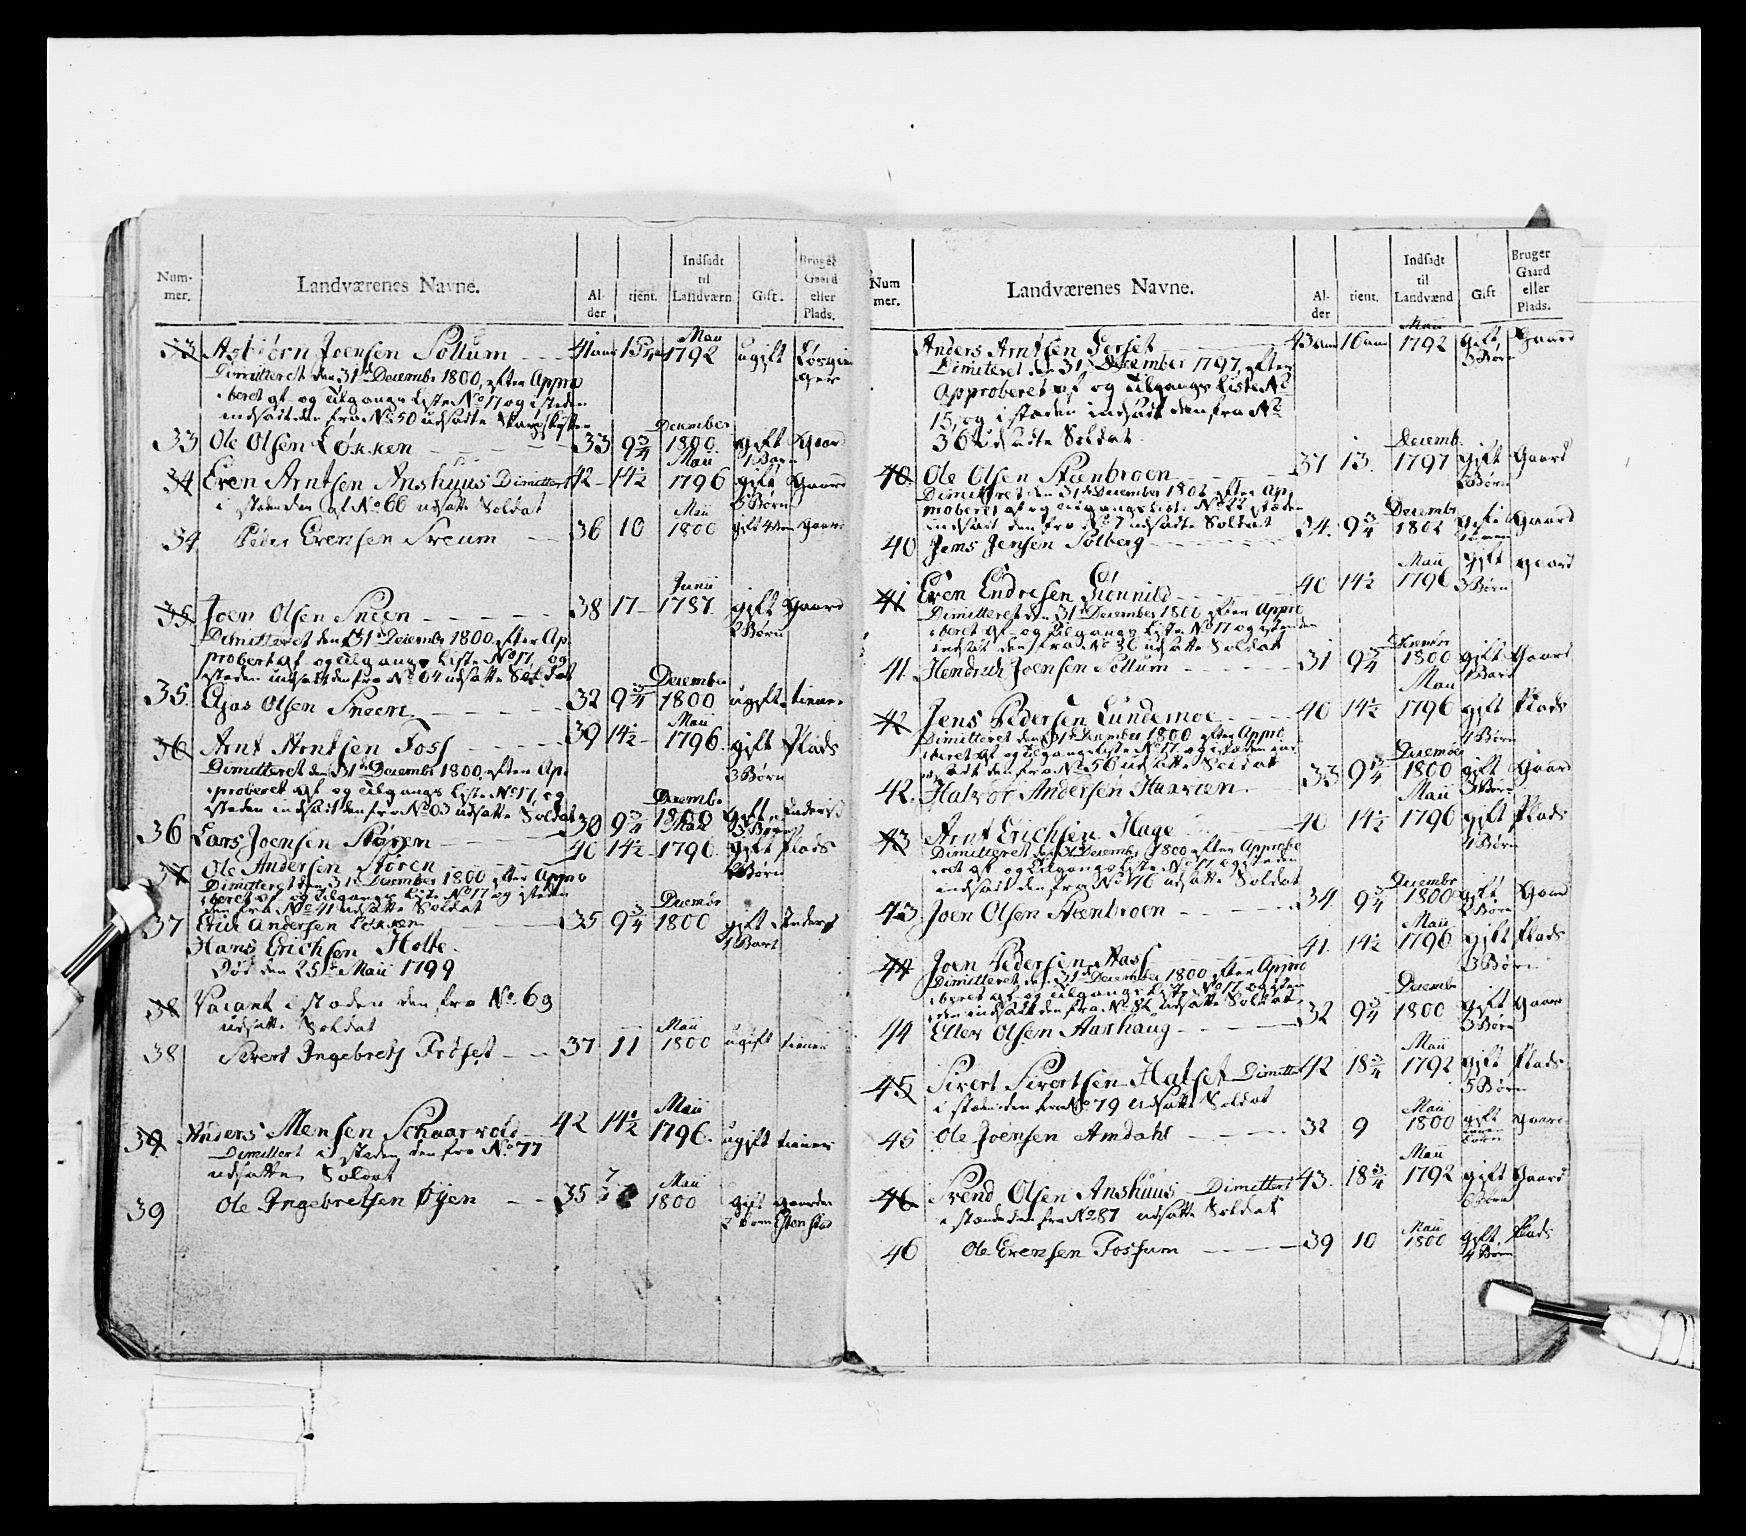 Num-
mer.
Landværenes Navne.
Al-
der
tjent.
Indsadt
til
Landværn
Gift.
Bruger
Gaard
eller
Plads.
33 Asbiørn Joensen Sollum - - 41 aar 15 Maii 1792 ugift
Dimitteret den 31te December 1800, efter Appro
beret af og Tilgangs Liste No 17 og i steden
indsadt den fra No 50 udsadte
33 Ole Olsen Løkken - - - 33 9 3/4 December 1800 gift 1 Barn Gaard
34 Even Arntsen Anshuus Dimittert 42 14 1/2 Maii 1796 gift 3 Børn Gaard
i steden den af No 66 udsatte Soldat
34 Peder Evensen Sveum - - 36 10 Maii 1800 gift 4 Børn Gaard
35 Joen Olsen Sneen - - - 38 17 Junii 1787 gift 2 Børn Gaard
Dimitteret den 31te December 1800 efter Ap-
probert af og Tilgangs Liste No 17, og
i steden indsadt den fra No 64 udsatte Soldat
35. Olsen Sneen - - - 32 9 3/4 December 1800 ugift tiener
36 Arnt Arntsen Foss - - - 39 14 1/2 Maii 1796. gift 3 Børn Plads
Dimitteret den 31te December 1800, efter Ap-
proberet af og Tilgangs Liste No 17, og
i steden indsadt den fra No 63 udsatte Soldat
36 Lars Joensen Støren - - - 30 9 3/4 December 1800 gift 3 Børn
37 Ole Andersen Støren - - - 40 14 1/2 Maii 1796. gift 2 Børn Plads
Dimitteret den 31te December 1800 efter Appro
beret af og Tilgangs Liste No 17 og i steden
den fra No 41 udsatte Soldat
37 Erich Andersen Løkken - - - 35 9 3/4 December 1800 gift 1 Barn
Hans Erichsen Holte.
Død den 25de Maii 1799
38 Vacant i steden den fra No. 69
udsatte Soldat
38 Sivert Ingebrets Frøset - - 37 11 Maii 1800 ugift tiener
39 Anders Monsen Schaarvold - 42 14 1/2 Maii 1796. ugift tiener
Dimittert i steden den fra No 77
udsatte Soldat
39 Ole Ingebretsen Øyen - - 35 Maii 1800 gift 2 børn
Num
mer.
Landværenes Navne.
Al-
der
tient.
Indsadt
til
Landværnd
Gift
Bruger
Gaard
eller
Plads.
Anders Arntsen - - 43 aar 16 aar Maii 1792 gift, 3 Børn Gaard
Dimiteret den 31 December 1797, efter
Approberet af og Tilgangs Liste No
15, og i steden indsadt den fra No
36 udsadte Soldat.
40. Ole Olsen Steenbroen - - - 37 13. Decemb. 1797 gift 2 Børn Gaard
Dimitteret den 31te December 1802 efter Ap-
proberet af og Tilgangs Liste No 22 i steden
indsadt den fra No 7 udsadte Soldat
40 Jens Jensen Solberg - - - 34. 9 3/4 Decembr 1802 Gaard
41 Even Endresen Sionnild - - - 40 14 1/2 Maii 1796 gift 3 Børn gaard
Dimitteret den 31te December 1800 efter Appro
beret af og Tilgangs Liste No 17 og i steden
indsat den fra No 36 udsatte Soldat
41. Hendrich Joensen Sollum - - - 31 9 3/4 December 1800 gift 1 Barn Gaard
42 Jens Pedersen Lundemoe - - - 40 14 1/2 Maii 1796 gift 1 Børn Plads
Dimitteret den 31te December 1800 efter Appro
beret af og Tilgangs Liste No 17 og i steden ind
sadt den fra No 56 udsatte Soldat
42. Halvor Andersen Haaven. 33 9 3/4 December 1800 gift 3 Børn Gaard
43 Arnt Erichsen Hage - - - 40 14 1/2 Maii 1796 gift 1 Børn Plads
Dimitteret den 31te Decembr 1800 efter Approbe
ret af og Tilgangs Liste No 17 og i steden
indsadt den fra No 76 udsatte Soldat
43 Joen Olsen Steenbroen - - - 34. 9 3/4 Decembr 1800 gift 2 Børn Gaard
44 Joen Pedersen - - - 41. 14 1/2 Maii 1796 gift 3 Børn Plads
Dimitteret den 31te December 1800 efter Appro
beret af og Tilgangs Liste No 17 og i ste
den indsadt den fra No 82 udsatte Soldat
44 Eller Olsen Aarhaug - - - 32 9 3/4 Decembr 1800 gift 3 Børn Gaard
45 Sivert Sivertsen Halset Dimittert 42 18 3/4 Maii 1792 gift 5 Børn Plads
i steden den fra No 79 udsatte Soldat
45 Ole Joensen Amdahl - - - 32 9 Maii 1800 gift gaard
46 Svend Olsen Anshuus Dimittert 43. 18 3/4 Maii 1792 gift 6 Børn Gaard
i steden den fra No 87 udsatte Soldat
46 Ole Evensen Fossum - - - 39 10 Maii 1800 gift, 4 Børn Plads